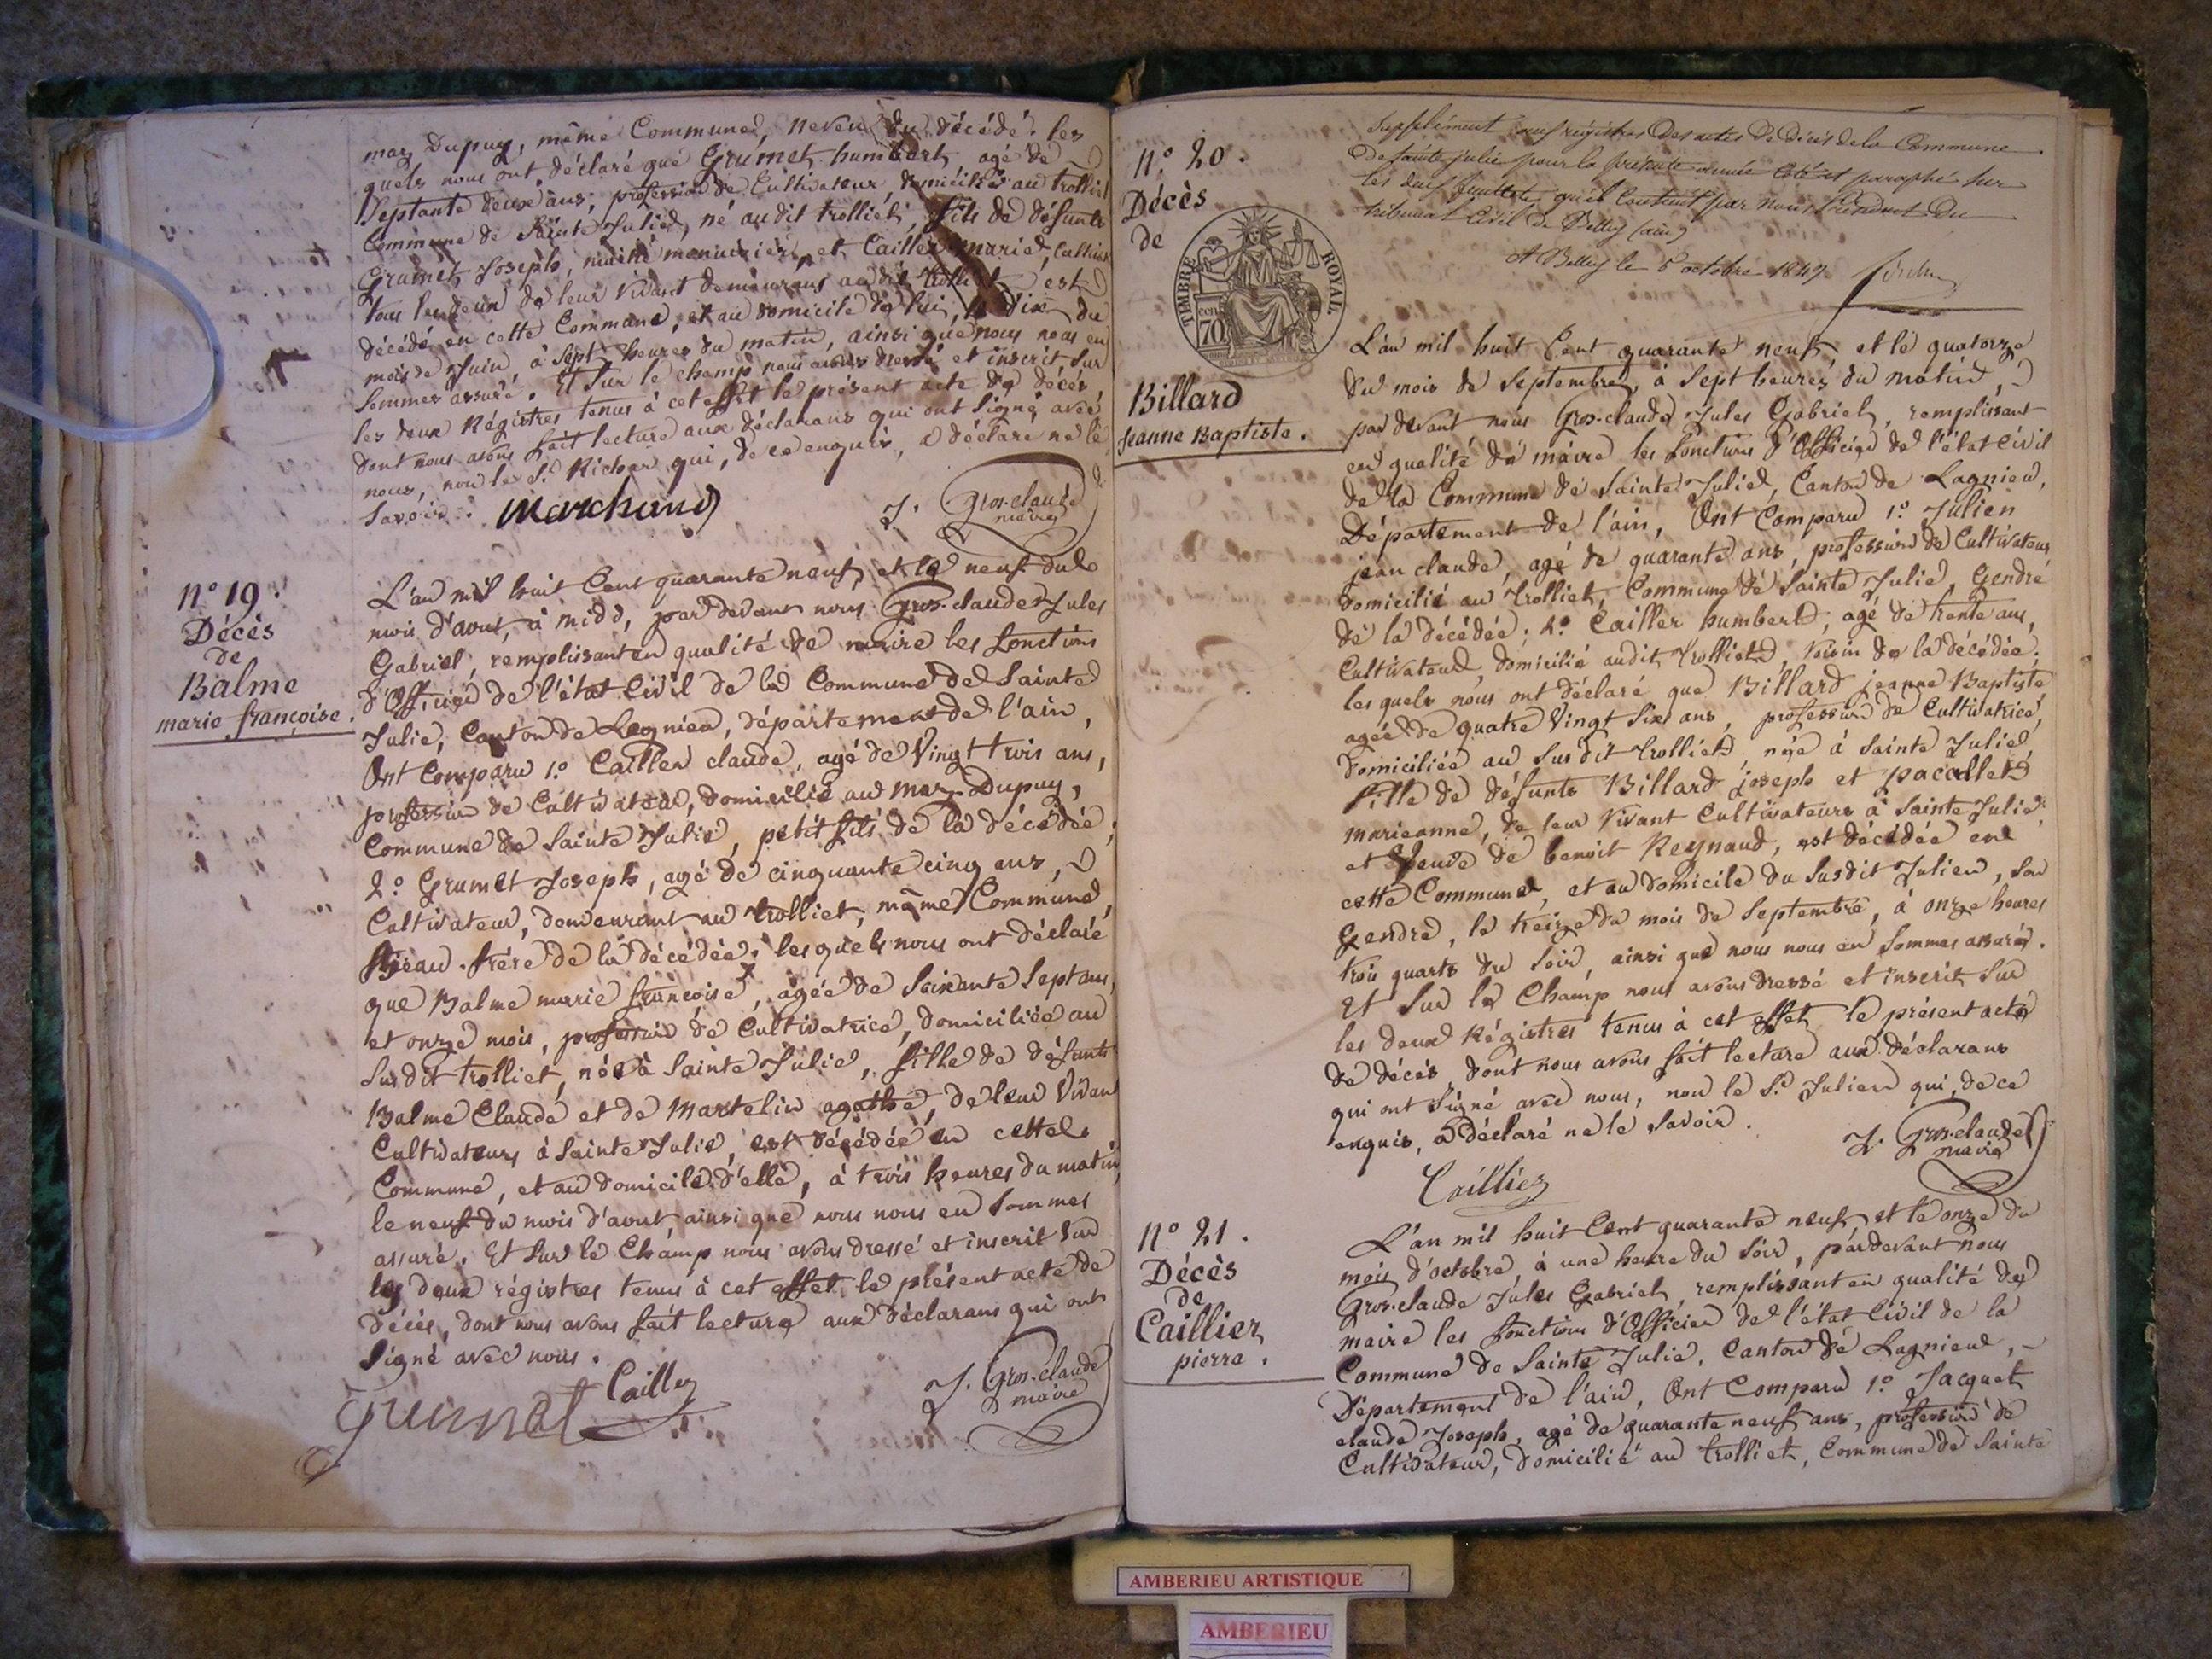 mas Dupuy, même Commune, neveu du décédé. les
quels nous ont déclaré que Grumet humbert, agé de
Septante deux ans, profession de Cultivateur, domicilié au trolliet
Commune de Sainte Julie, né au dit trolliet, fils de défunts
Grumet Joseph, maître menuisier, et Caillier marie,
tous les deux de leur vivant demeurans au dit trolliet, est
décédé en cette Commune, et au domicile de lui, le dix du
mois de Juin, à Sept heures du matin, ainsi que nous nous en
Sommes assuré. Et Sur le champ nous avons dressé et inscrit Sur
les deux Régistres tenus à cet effet le présent acte de décès,
dont nous avons fait lecture aux déclarans qui ont Signé avec
nous, non le S.r Richer qui, de ce enquis, a déclaré ne le
Savoir.
Marchand
J. Gros-claude
maire
N.º 19.
Décès
de
Balme
marie françoise.
L'an mil huit Cent quarante neuf, et le neuf du
mois d'aout, à midi, pardevant nous Gros-claude Jules
Gabriel, remplissant en qualité de maire les fonctions
d'Officier de l'état Civil de la Commune de Sainte
Julie, Canton de Lagnieu, département de l'ain,
Ont Comparu 1.º Caillier claude, agé de Vingt trois ans,
profession de Cultivateur, domicilié au mas Dupuy,
Commune de Sainte Julie, petit fils de la décédée;
2.º Grumet Joseph, agé de cinquante cinq ans,
Cultivateur, demeurant au trolliet, même Commune,
Beau-frère de la décédée; lesquels nous ont déclaré
que Balme marie françoise, agée de Soixante Sept ans,
et onze mois, profession de Cultivatrice, domiciliée au
Susdit trolliet, née à Sainte Julie, fille de défunts
Balme Claude et de Martelin agathe, de leur Vivant
Cultivateurs à Sainte Julie, est décédée en cette
Commune, et au domicile d'elle, à trois heures du matin,
le neuf du mois d'aout, ainsi que nous nous en Sommes
assuré. Et Sur le Champ nous avons dressé et inscrit Sur
les deux régistres tenus à cet effet le présent acte de
décès, dont nous avons fait lecture aux déclarans qui ont
Signé avec nous.
Caillier
Grumet
J. Gros-claude
maire
N.º 20.
Décès
de
TIMBRE ROYAL
70
Billard
Jeanne Baptiste.
Supplément aux régistres des actes de décès de la Commune
de Sainte julie pour la présente année Coté et paraphé Sur
les deux feuillets qu'il Contient par nous Président du
tribunal Civil de Belley (ain)
A Belley le 5 octobre 1849
L'an mil huit Cent quarante neuf, et le quatorze
du mois de Septembre, à Sept heures du matin,
par devant nous Gros-claude Jules Gabriel, remplissant
en qualité de maire les fonctions d'Officier de l'état Civil
de la Commune de Sainte Julie, Canton de Lagnieu,
Département de l'ain, Ont Comparu 1.º Julien
jean claude, agé de quarante ans, profession de Cultivateur
domicilié au trolliet, Commune de Sainte Julie, Gendre
de la décédée; 2.º Caillier humbert, agé de trente ans,
Cultivateur, domicilié audit trolliet, Voisin de la décédée;
les quels nous ont déclaré que Billard jeanne Baptiste
agée de quatre Vingt Six ans, profession de Cultivatrice,
domiciliée au Susdit trolliet, née à Sainte Julie,
fille de défunts Billard joseph et pacallet
marieanne, de leur Vivant Cultivateurs à Sainte Julie
et Veuve de benoit Reynaud, est décédée en
cette Commune, et au domicile du Susdit Julien, Son
Gendre, le treize du mois de Septembre, à onze heures
trois quarts du Soir, ainsi que nous nous en Sommes assuré.
Et Sur le Champ nous avons dressé et inscrit Sur
les deux Régistres tenus à cet effet le présent acte
de décès, dont nous avons fait lecture aux déclarans
qui ont Signé avec nous, non le S.r Julien qui, de ce
enquis, a déclaré ne le Savoir.
J. Gros-claude
maire
Caillier
N.º 21.
Décès
de
Caillier
pierre.
L'an mil huit Cent quarante neuf, et le onze du
mois d'octobre à une heure du Soir, pardevant nous
Gros-claude Jules Gabriel, remplissant en qualité de
maire les fonctions d'Officier de l'état Civil de la
Commune de Sainte Julie, Canton de Lagnieu,
Département de l'ain, Ont Comparu 1.º Jacquet
claude Joseph, agé de quarante neuf ans, profession de
Cultivateur, domicilié au trolliet, Commune de Sainte
AMBERIEU ARTISTIQUE
AMBERIEU